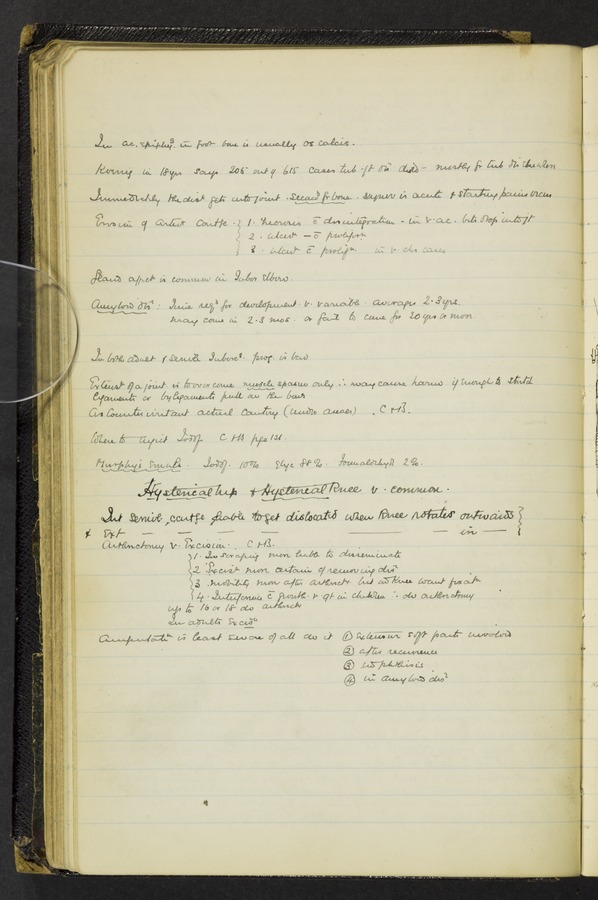 In ac. epiphys. in foot bone is usually os calcis.
König in 18 yrs says 205 out of 615 cases tub. jt dis died – mostly fr tub dis elsewhere
Immediately the dist gets into joint. second fr bone. signs is acute & starting pains occur
Erosion of Artic Cartlge. 1. Necrosis c̄ disintegration - in v. ac. bits drop into jt
2. ulcer – c̄ prolif
3. ulcer c̄ prolig in v. chr cases
is common in Tuber Elbow.
Amyloid dis: Time reqd for development v. variable. averages 2-3 yrs.
may come in 2-3 mos. or fail to come for 20 yrs or more.
In both adult & senile Tuberc. prog. is bad
Extenst of a joint is to overcome muscle spasm only ∴ may cause harm if enough to stretch
ligaments or by ligaments pull on the bones
As Counterirritant actual Cautery (under anaes). C & B.
Where to inject Iodof. C & B page 131.
Murphy's Emuls. Iodof. 10% Glyc 88%. Formaldehyd 2%.
Hysterical hip & Hysterical Knee v. common.
Int semil. cartge liable to get dislocated when Knee rotates outwards
& Ext — — — — — — in —
Arthrectomy v. Excision. C & B.
1. In scraping more liable to disseminate
2. Excisn more certain of removing dis
3. mobility more after arthrect. but in Knee want fixatn
4. Interference c̄ growth is gt in children ∴ do arthrectomy
up to 16 or 18 do arthrect
in adults Excis
Amputatn is least severe of all do it ① Extensive soft parts involved
② after recurrence
③ in phthisis
④ in amyloid dis